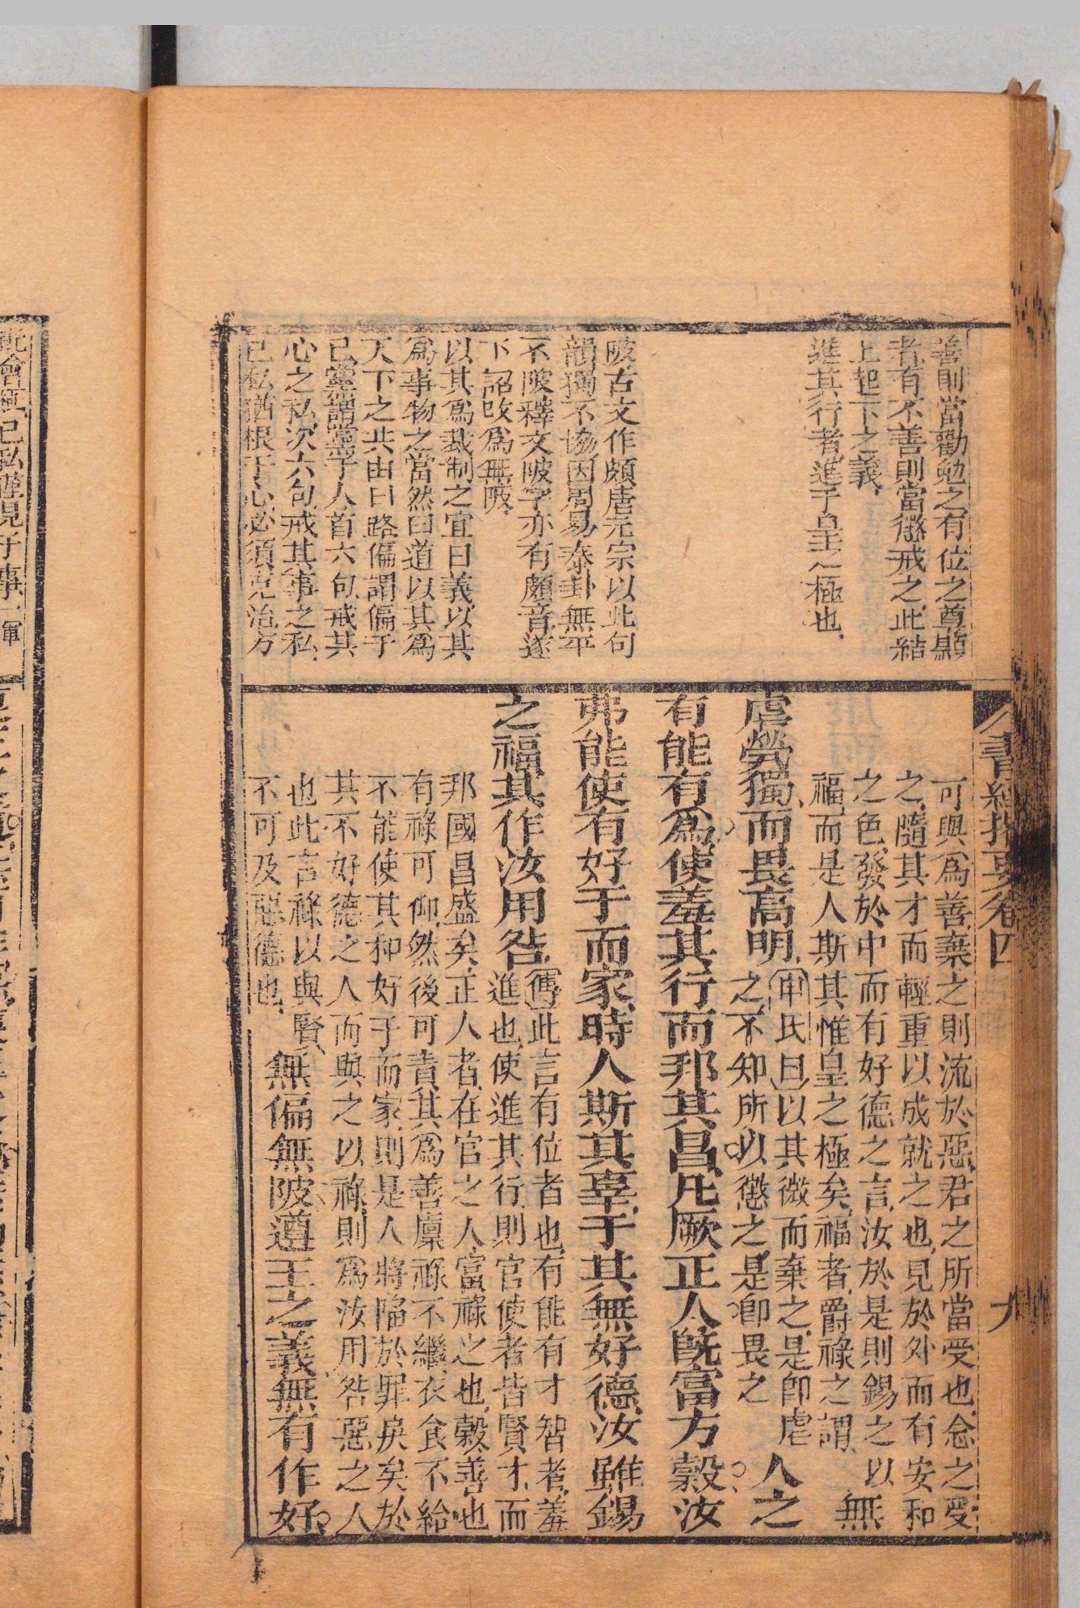 善則當勸勉之有位之尊顯
者有不善則當懲戒之此結
上起下之義
進其行者進于皇之極也
陂古文作頗唐元宗以此句
韻獨不協因周易泰卦無平
不陂釋文陂字亦有頗音遂
下詔改爲無陂
以其爲裁制之宜曰義以其
爲事物之當然曰道以其爲
天下之共由曰路偏謂偏于
己黨謂黨于人首六句戒其
心之私次六句戒其事之私
己私猶根于心必須克治方
書經指要卷四 九
可與爲善棄之則流於惡君之所當受也念之受
之隨其才而輕重以成就之也見於外而有安和
之色發於中而有好德之言汝於是則錫之以
福而是人斯其惟皇之極矣福者爵祿之謂 無
虐煢獨而畏高明 申氏曰以其微而棄之是卽虐
之不知所以懲之是卽畏之 人之
有能有爲使羞其行而邦其昌凡厥正人旣富方穀汝
弗能使有好于而家時人斯其辜于其無好德汝雖錫
之福其作汝用咎 傳此言有位者也有能有才智者羞
進也使進其行則官使者皆賢才而
邦國昌盛矣正人者在官之人富祿之也穀善也
有祿可仰然後可責其爲善廩祿不繼衣食不給
不能使其和好于而家則是人將陷於罪戾矣於
其不好德之人而與之以祿則爲汝用咎惡之人
也此言祿以與賢
不可及惡德也 無偏無陂遵王之義無有作好